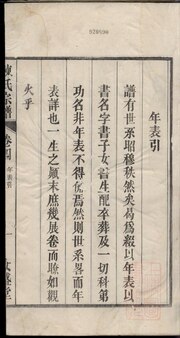 929596
年表引
譜有世系昭穆秩然矣曷爲綴以年表以
書名字書子女暨生配卒葬及一切科第
功名非年表不得舊焉然則世系畧而年
表詳也一生之顛末庶幾展卷而瞭如觀
火乎
陳氏宗譜
卷四
年表引
一